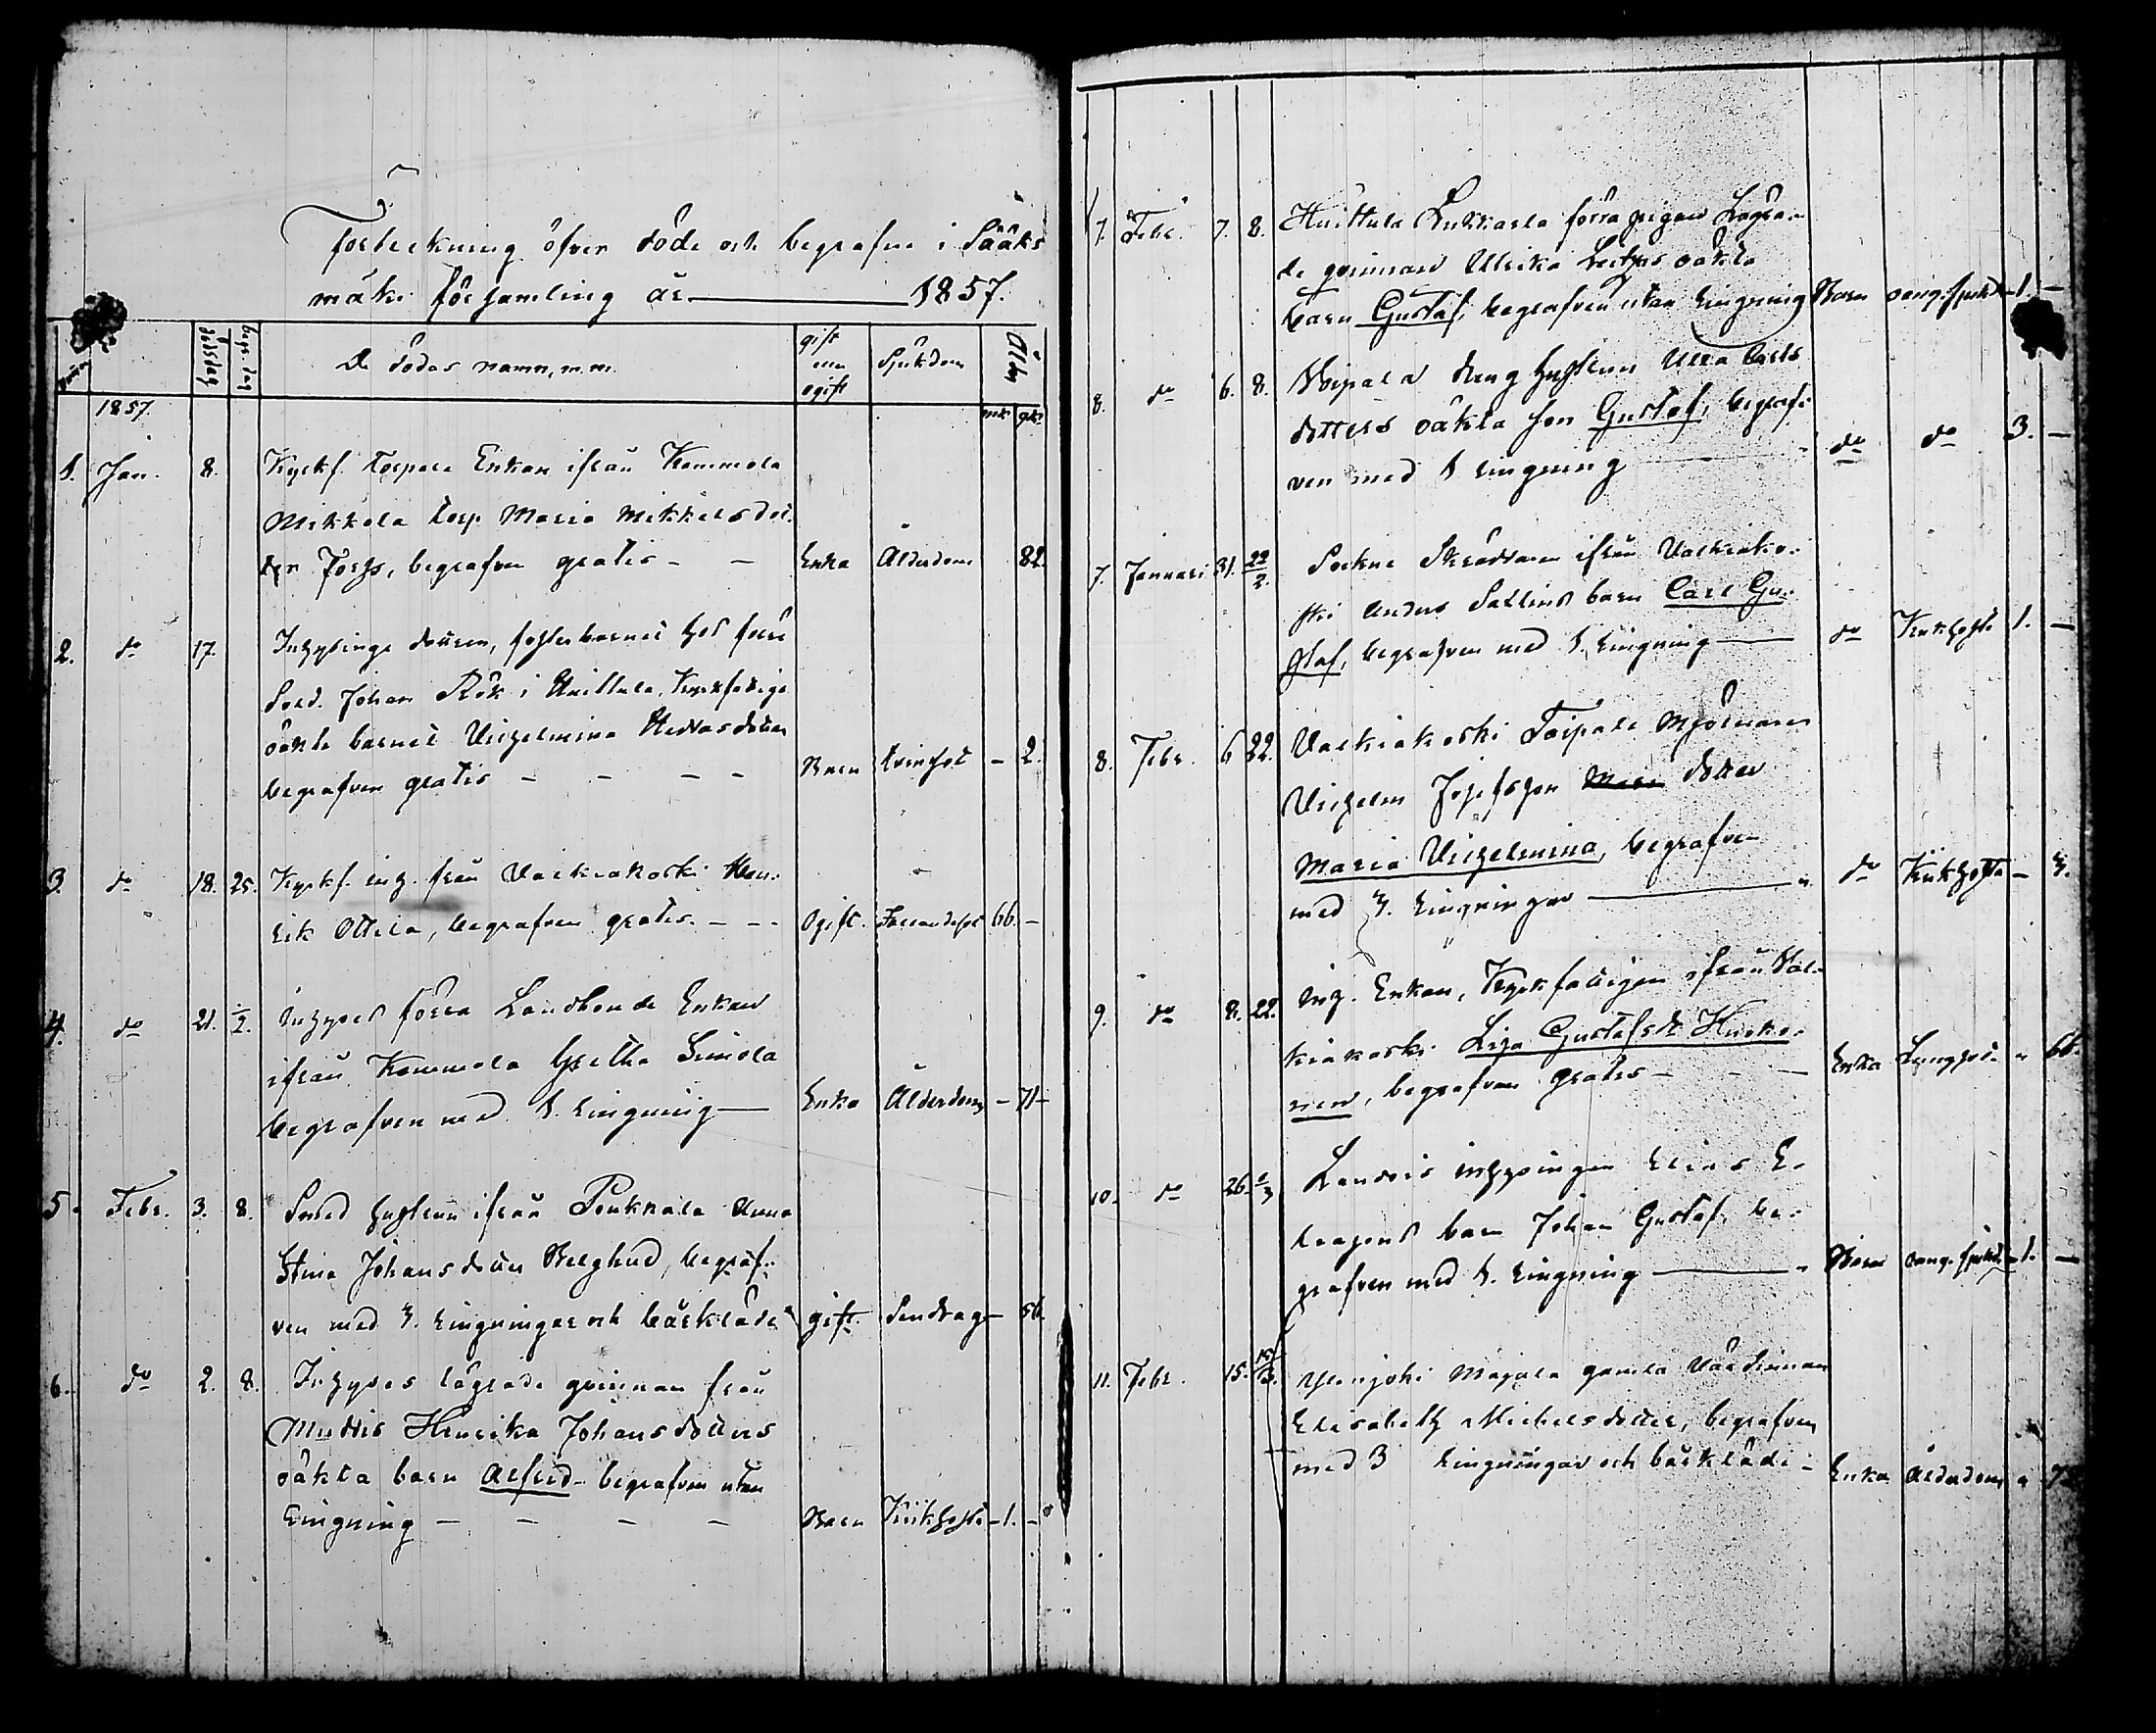 Förteckning öfver döde och begrafne i Sääks
mäki församling år 1857.
dödsdag
begr. dag
De dödas namn, m.m.
gift
eller
ogift
Sjukdom
Ålder
1857.
1. Jan. 8. Kyrkf. Torpare Enkan ifrån Kemmola
Mikkola torp Maria Mikkelsdot.
begrafven gratis – – Enka Ålderdom 82.
2. do 17. Inhysinge
Sold. Johan Rök i Huittula, Kyrkfattige
oäkta barnet Vilhelmina
begrafven gratis – – – – Barn tvinsot – 2.
3. do 18. 25. Kyrkf. inh. från Valkiakoski Hen-
rik Ottila, begrafven gratis – – – Ogift. 66. –
4. do 21. 1/2. Inhyses förra Landbonde Enkan
ifrån Kemmola Gretha Simola
begrafven med 1. ringning — Enka Ålderdom – 71 –
5. Febr. 3. 8. Smed hustrun ifrån Anna
Stina Johansdotter Berglund, begraf-
ven med 3. ringningar och bårkläde gift. – 56.
6. do 2. 8. Inhyses lägrade qvinnan från
Henrika Johansdotters
oäkta barn Alfred begrafven utan
ringning – – – – Barn Kikhosta – 1. –
7. Febr. 7. 8. Huittula Lukkarla förra pigan Lägra-
de qvinnan Ulrika oäkta
barn Gustaf, begrafven utan ringning Barn oang. sjukd. – 1. –
8. do 6. 8. Voipala dräng hustrun Ulla Carls
dotters oäkta son Gustaf, begraf-
ven med 1 ringning do do 3. –
7. Januari 31. 22/2. Sockne Skräddaren ifrån Valkiako-
ski Anders barn Carl Gu-
staf, begrafven med 1. ringning — do Kikhosta 1. –
8. Febr. 6 22. Valkiakoski Toipale Mjölnaren
Vilhelm Josefsson dotter
Maria Vilhelmina, begrafven
med 3. ringningar — do Kikhosta – 3.
9. do 8. 22. Inh. Enkan, Kyrkfattigen ifrån Val-
kiakoski Lisa Gustafsdr
nen, begrafven gratis – – – Enka Lungsot 66.
10. do 26. 1/3 inhysingen Elias E-
barn Johan Gustaf, be-
grafven med 1. ringning — Barn oang. sjukd. – 1. –
11. Febr. 15. 15/3. Ylenjoki Majala gamla Värdinnan
Elisabeth Michelsdotter, begrafven
med 3 ringningar och bårkläde – Enka Ålderdom 72